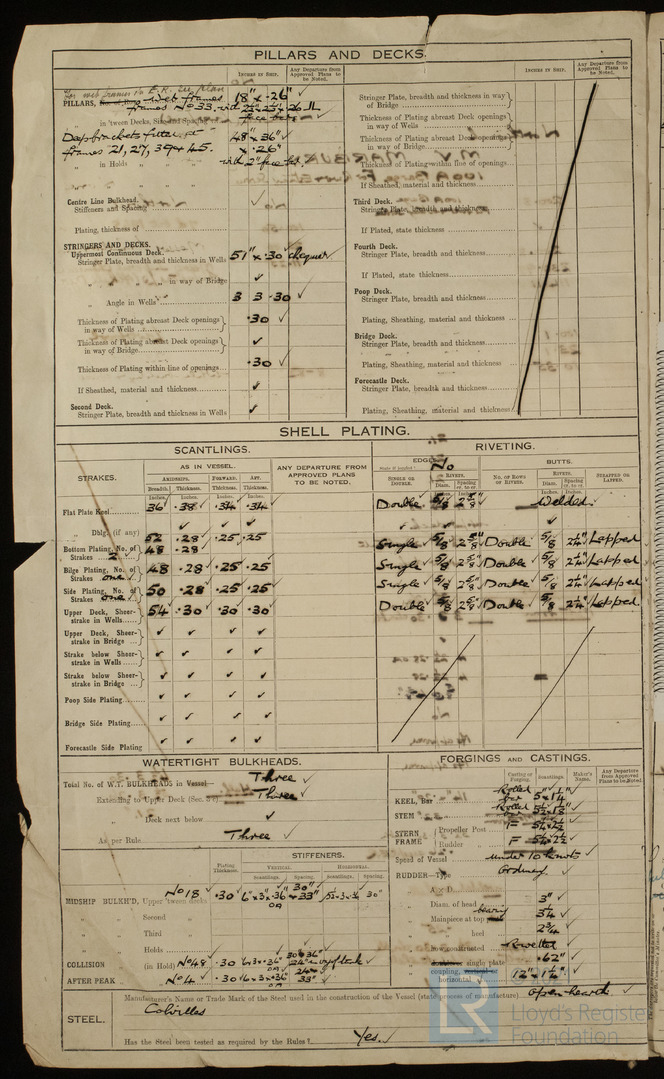 PILLARS AND DECKS.
INCHES IN SHIP.
Any Departure from Approved Plans to be Noted.
For web frames in E.R. see plan
PILLARS, web frames 18" x .26"
frames No 33. with
in 'tween Decks, Size and Spacing face bar
Deep brackets fitted at 48" x 36"
frames 21, 27, 39 & 45. x .26"
in Holds with 2" face
Centre Line Bulkhead.
Stiffeners and Spacing ✓
Plating, thickness of
STRINGERS AND DECKS.
Uppermost Continuous Deck.
Stringer Plate, breadth and thickness in Wells 51" x .30 chequer ✓
" " " in way of Bridge ✓
Angle in Wells 3 3 .30 ✓
Thickness of Plating abreast Deck openings in way of Wells .30 ✓
Thickness of Plating abreast Deck openings in way of Bridge ✓
Thickness of Plating within line of openings .30 ✓
If Sheathed, material and thickness ✓
Second Deck.
Stringer Plate, breadth and thickness in Wells ✓
INCHES IN SHIP.
Any Departure from Approved Plans to be Noted.
Stringer Plate, breadth and thickness in way of Bridge
Thickness of Plating abreast Deck openings in way of Wells
Thickness of Plating abreast Deck openings in way of Bridge
Thickness of Plating within line of openings
If Sheathed, material and thickness
Third Deck.
Stringer Plate, breadth and thickness
If Plated, state thickness
Fourth Deck.
Stringer Plate, breadth and thickness
If Plated, state thickness
Poop Deck.
Stringer Plate, breadth and thickness
Plating, Sheathing, material and thickness
Bridge Deck.
Stringer Plate, breadth and thickness
Plating, Sheathing, material and thickness
Forecastle Deck.
Stringer Plate, breadth and thickness
Plating, Sheathing, material and thickness
SHELL PLATING.
SCANTLINGS.
RIVETING.
STRAKES.
AS IN VESSEL.
AMIDSHIPS. FORWARD. AFT.
Breadth. Thickness. Thickness. Thickness.
Inches. Inches. Inches. Inches.
ANY DEPARTURE FROM APPROVED PLANS TO BE NOTED.
EDGES.
State if joggled? No
SINGLE OR DOUBLE.
RIVETS.
Diam. Spacing cr. to cr.
BUTTS.
No. OF ROWS OF RIVETS.
RIVETS.
Diam. Spacing cr. to cr.
STRAPPED OR LAPPED.
Flat Plate Keel 36 .38 .34 .34 Double 5/8 2 5/8 Welded
" Dblg. (if any) ✓ ✓ ✓ ✓
Bottom Plating, No. of Strakes 2 52 .28 .25 .25 Single 5/8 2 5/8 Double 5/8 2¼" Lapped
48 .28
Bilge Plating, No. of Strakes one 48 .28 .25 .25 Single 5/8 2 5/8 Double 5/8 2¼" Lapped
Side Plating, No. of Strakes one 50 .28 .25 .25 Single 5/8 2 5/8 Double 5/8 2¼" Lapped
Upper Deck, Sheerstrake in Wells 54 .30 .30 .30 Double 5/8 2 5/8 Double 5/8 2¼" Lapped
Upper Deck, Sheerstrake in Bridge ✓ ✓ ✓ ✓
Strake below Sheerstrake in Wells ✓ ✓ ✓ ✓
Strake below Sheerstrake in Bridge ✓ ✓ ✓ ✓
Poop Side Plating ✓ ✓ ✓ ✓
Bridge Side Plating ✓ ✓ ✓ ✓
Forecastle Side Plating ✓ ✓ ✓ ✓
WATERTIGHT BULKHEADS.
Total No. of W.T. BULKHEADS in Vessel Three ✓
Extending to Upper Deck (Sec. 3) Three ✓
" Deck next below ✓
As per Rule Three ✓
Plating Thickness.
STIFFENERS.
VERTICAL. HORIZONTAL.
Scantlings. Spacing. Scantlings. Spacing.
MIDSHIP BULKH'D, Upper 'tween decks No 18 .30 6" x 3 x .36 30" & 33" 30"
" Second "
" Third "
" Holds
COLLISION (in Hold) No 48 .30 6 x 3 x .36 30" & 36"
24" in way of tank
AFTER PEAK No 4 .30 6 x 3 x .36 24" & 33"
FORGINGS AND CASTINGS.
Casting or Forging. Scantlings. Maker's Name. Any Departure from Approved Plans to be Noted.
KEEL, Bar Rolled bar 5" x 1¼"
STEM Rolled bar
STERN FRAME Propeller Post F
Rudder " F
Speed of Vessel under 10 knots ✓
RUDDER—Type Ordinary ✓
Diam. of head 3" ✓
Mainpiece at top bearing 3¼ ✓
" heel 2¾ ✓
how constructed Rivetted ✓
single plate .62" ✓
coupling, horizontal 12" x 1¼" ✓
STEEL.
Manufacturer's Name or Trade Mark of the Steel used in the construction of the Vessel (state process of manufacture) Open hearth ✓
Colvilles
Has the Steel been tested as required by the Rules? Yes. ✓
LR
Lloyd's Register
Foundation